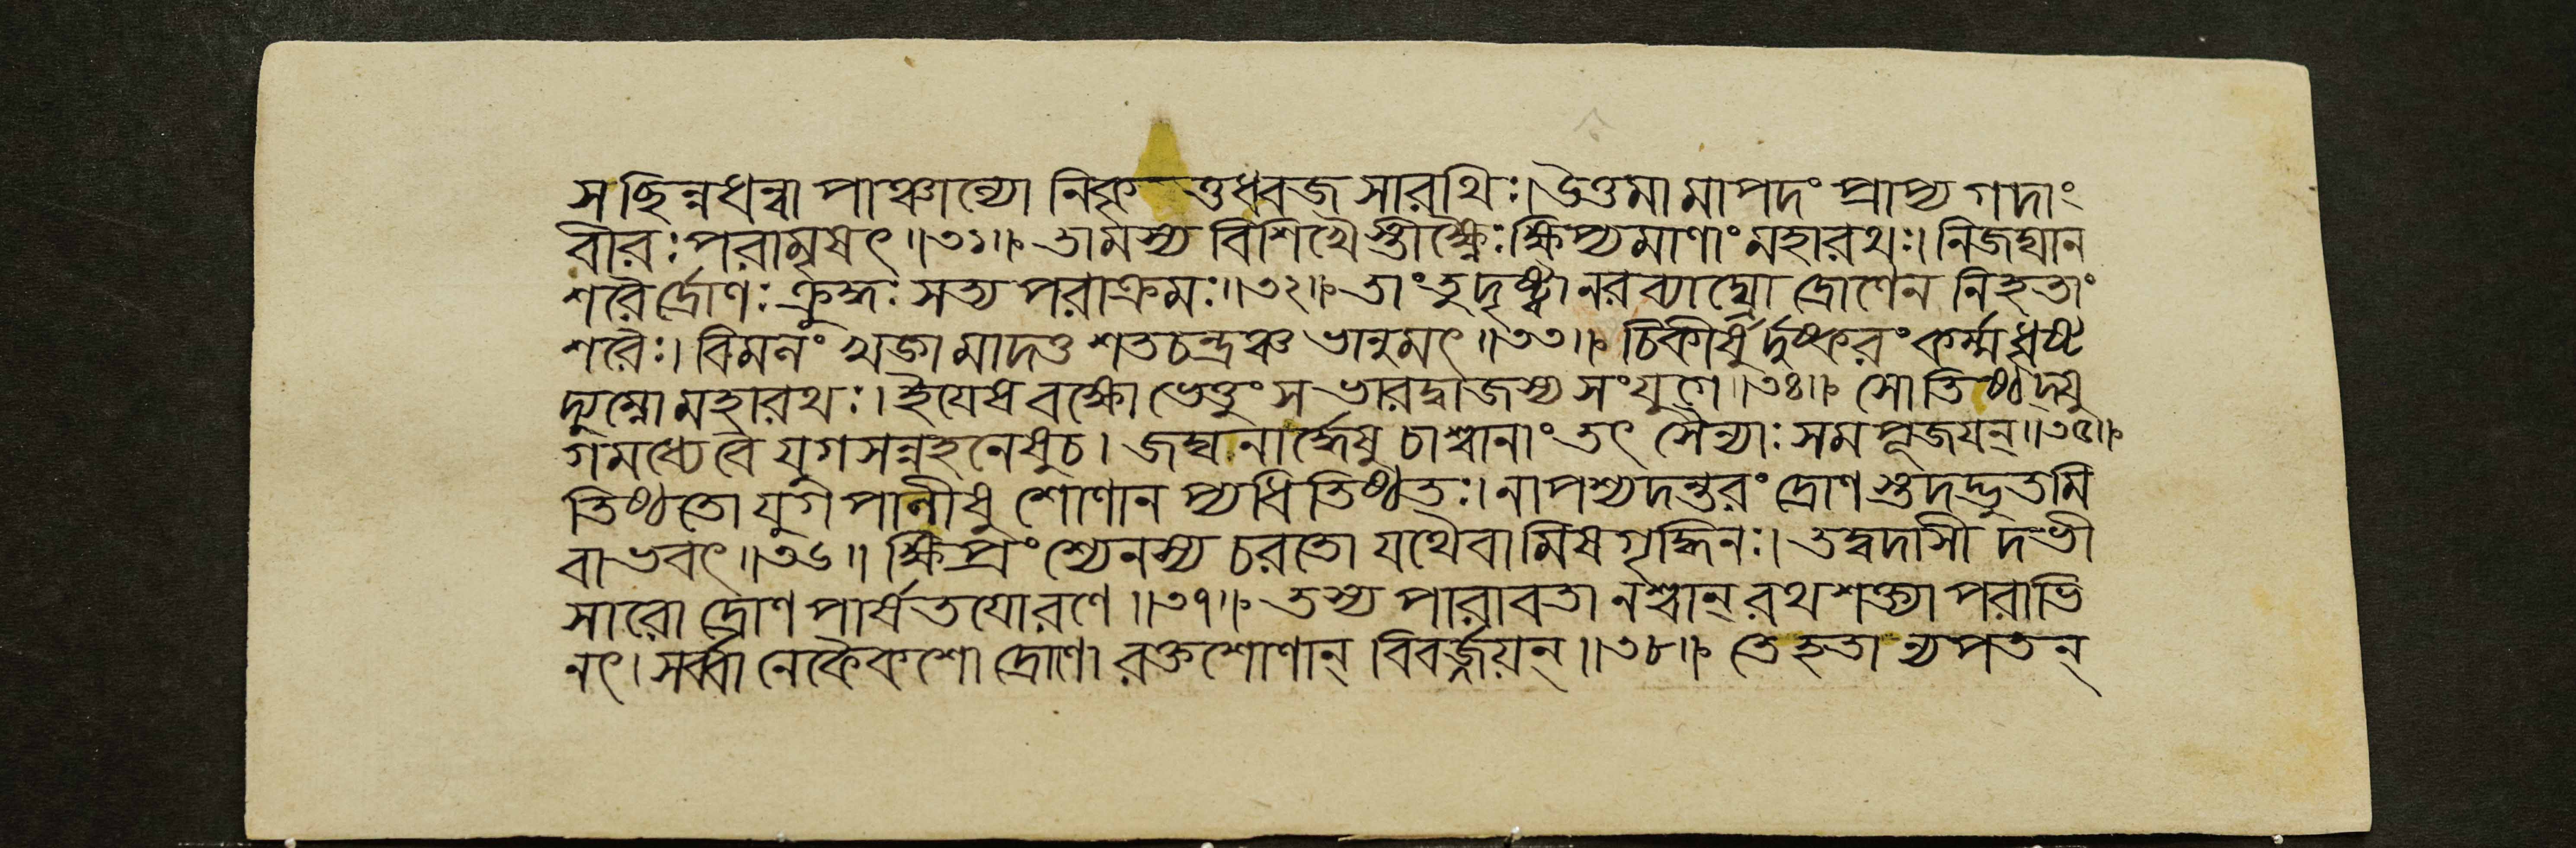 স ছিন্নধন্বা পাঞ্চাল্যো নিকৃত্তধ্বজ সারথিঃ। উত্তমামাপদং প্রাপ্য গদাং
বীরঃ পরামৃষৎ॥৩১॥ তামস্য বিশিখৈস্তীক্ষ্ণৈঃ ক্ষিপ্যমাণাং মহারথঃ। নিজঘান
শরৈর্দ্রোণঃ ক্রুদ্ধঃ সত্য পরাক্রমঃ॥৩২॥ তাং তু দৃষ্ট্বা নরব্যাঘ্রো দ্রোণেন নিহতাং
শরৈঃ। বিমলং খড়্গমাদত্ত শতচন্দ্রঞ্চ ভানুমৎ॥৩৩॥ চিকীর্ষুর্দুষ্করং কর্ম্ম ধৃষ্ট
দ্যুম্নো মহারথঃ। ইয়েষ বক্ষো ভেত্তুং স ভারদ্বাজস্য সংযুগে॥৩৪॥ সোতিষ্ঠদ্যু
গমধ্যে বৈ যুগসন্নহনেষু চ। জঘনার্দ্ধেষু চাশ্বানাং তৎ সৈন্যাঃ সমপূজয়ন্॥৩৫॥
তিষ্ঠতো যুগপালীষু শোণানপ্যধিতিষ্ঠতঃ। নাপশ্যদন্তরং দ্রোণস্তদদ্ভুতমি
বাভবৎ॥৩৬॥ ক্ষিপ্রং শ্যেনস্য চরতো যথৈবামিষগৃদ্ধিনঃ। তদ্বদাসীদভী
সারো দ্রোণ পার্ষতয়োরণে॥৩৭॥ তস্য পারাবতানশ্বান্ রথশক্ত্যা পরাভি
নৎ। সর্ব্বানেকৈকশো দ্রোণো রক্তশোণান্ বিবর্জ্জয়ন্॥৩৮॥ তে হতা ন্যপতন্